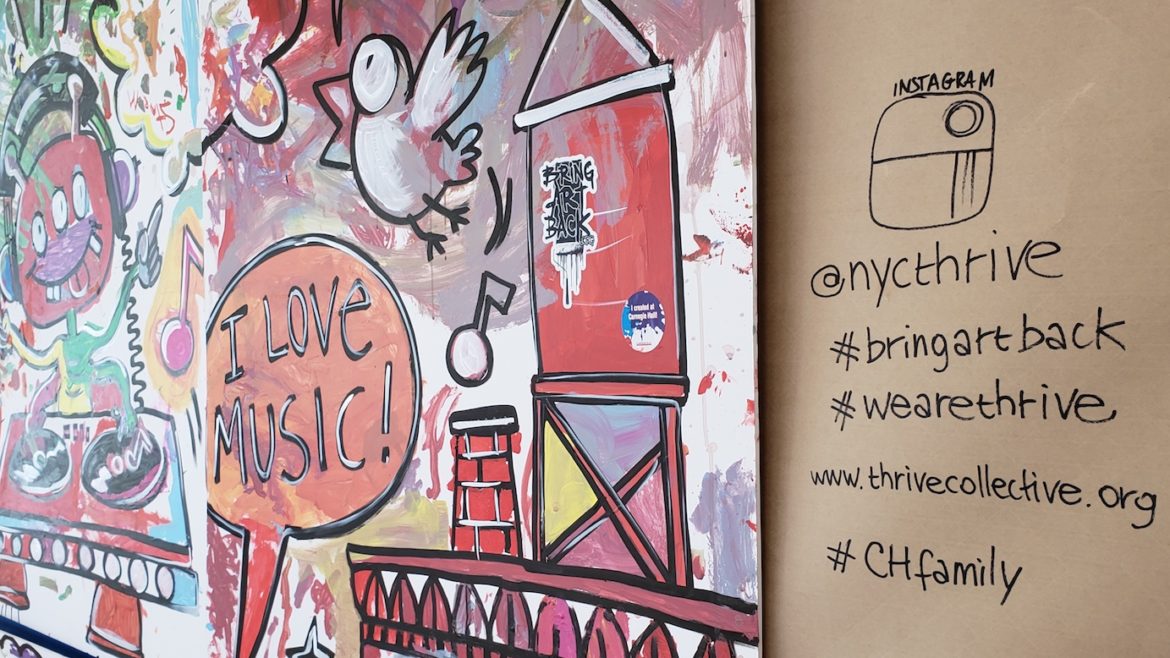 I LOVE
MUSIC!
BRING
ART
BACK
I created at
Carnegie Hall!
INSTAGRAM
@nycthrive
#bringartback
#wearethrive
www.thrivecollective.org
#CHfamily